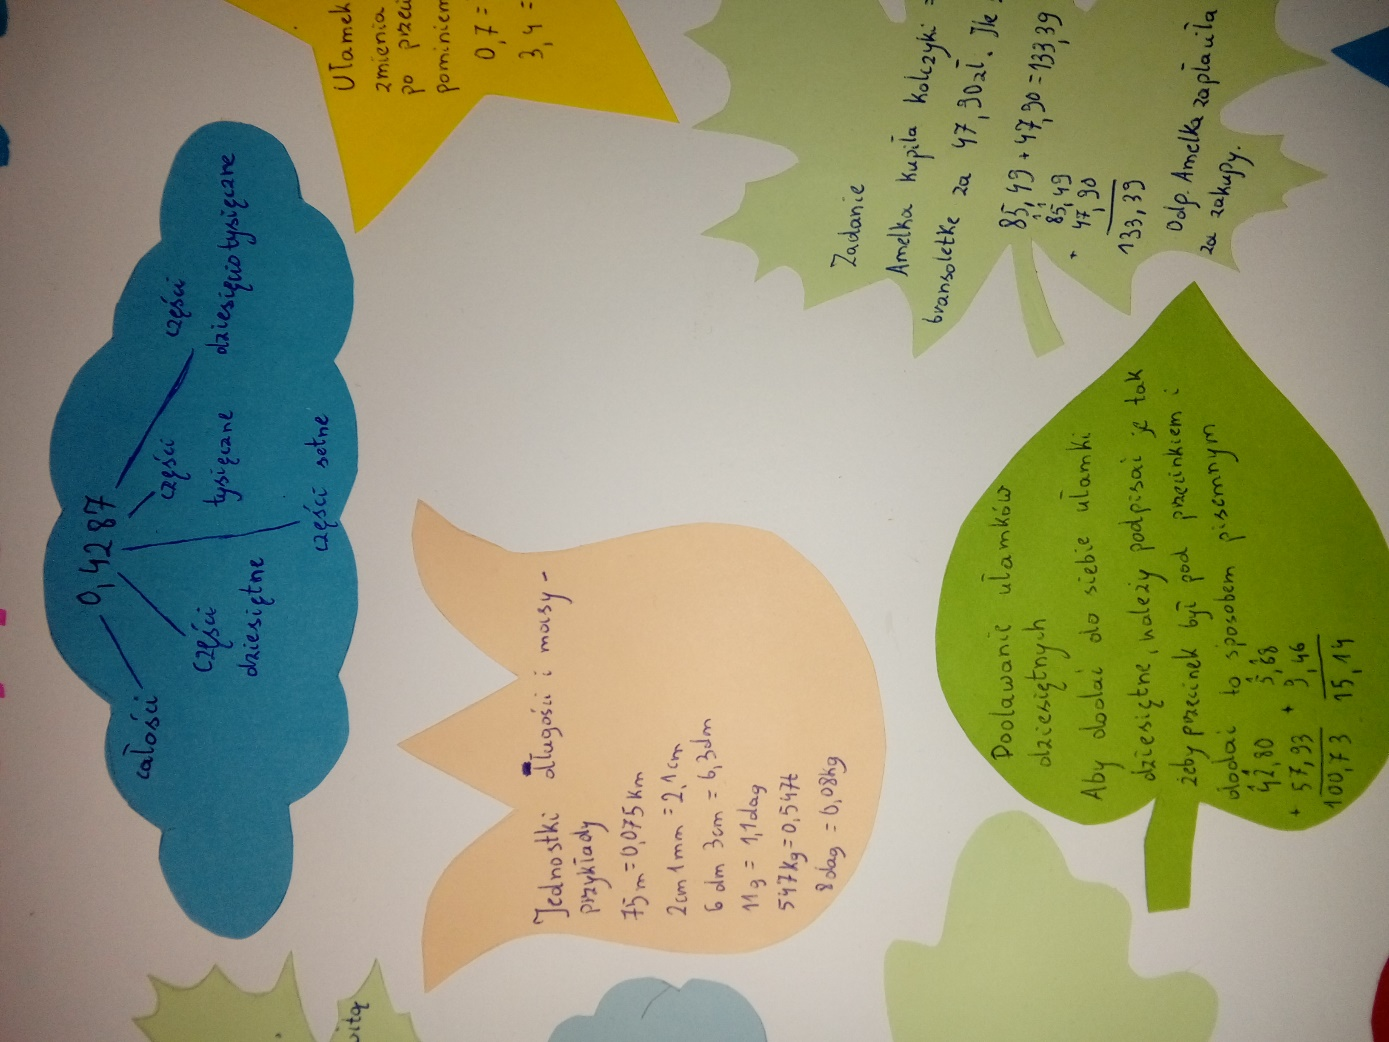 0,4287
całości
części
dziesiętne
części setne
części
tysięczne
części
dziesięciotysięczne
Ułamek
zmienia
po przeci
pominiem
0,7 =
3,4 =
Jednostki długości i masy -
przykłady
75 m = 0,075 km
2cm 1mm = 2,1cm
6 dm 3cm = 6,3dm
11g = 1,1dag
547kg = 0,547t
8dag = 0,08kg
Zadanie
Amelka kupiła kolczyki =
bransoletkę za 47,90zł. Ile
85,49 + 47,90 = 133,39
1 1
85,49
+ 47,90
133,39
Odp. Amelka zapłaciła
za zakupy.
Dodawanie ułamków
dziesiętnych
Aby dodać do siebie ułamki
dziesiętne, należy podpisać je tak
żeby przecinek był pod przecinkiem i
dodać to sposobem pisemnym
42,80 5,68
+ 57,93 + 9,46
100,73 15,14
witą